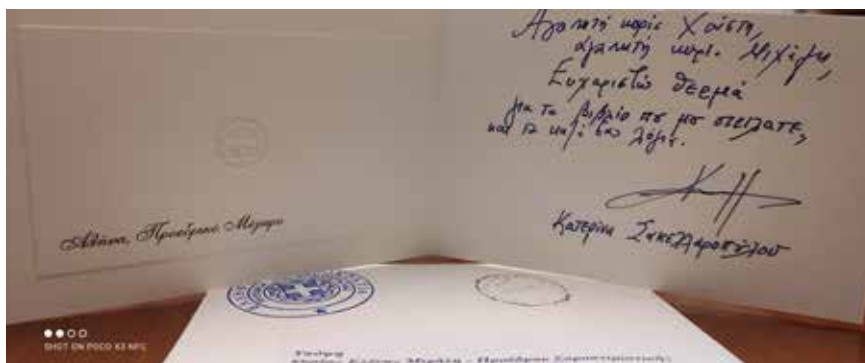 Αγαπητή κυρία Χούστη,
αγαπητή κυρί. Μιχάλη,
Ευχαριστώ θερμά
για το βιβλίο που μου στείλατε,
και τα καλά σας λόγια.
Κατερίνα Σακελλαροπούλου
Αθήνα, Προεδρικό Μέγαρο
SHOT ON POCO X3 NFC